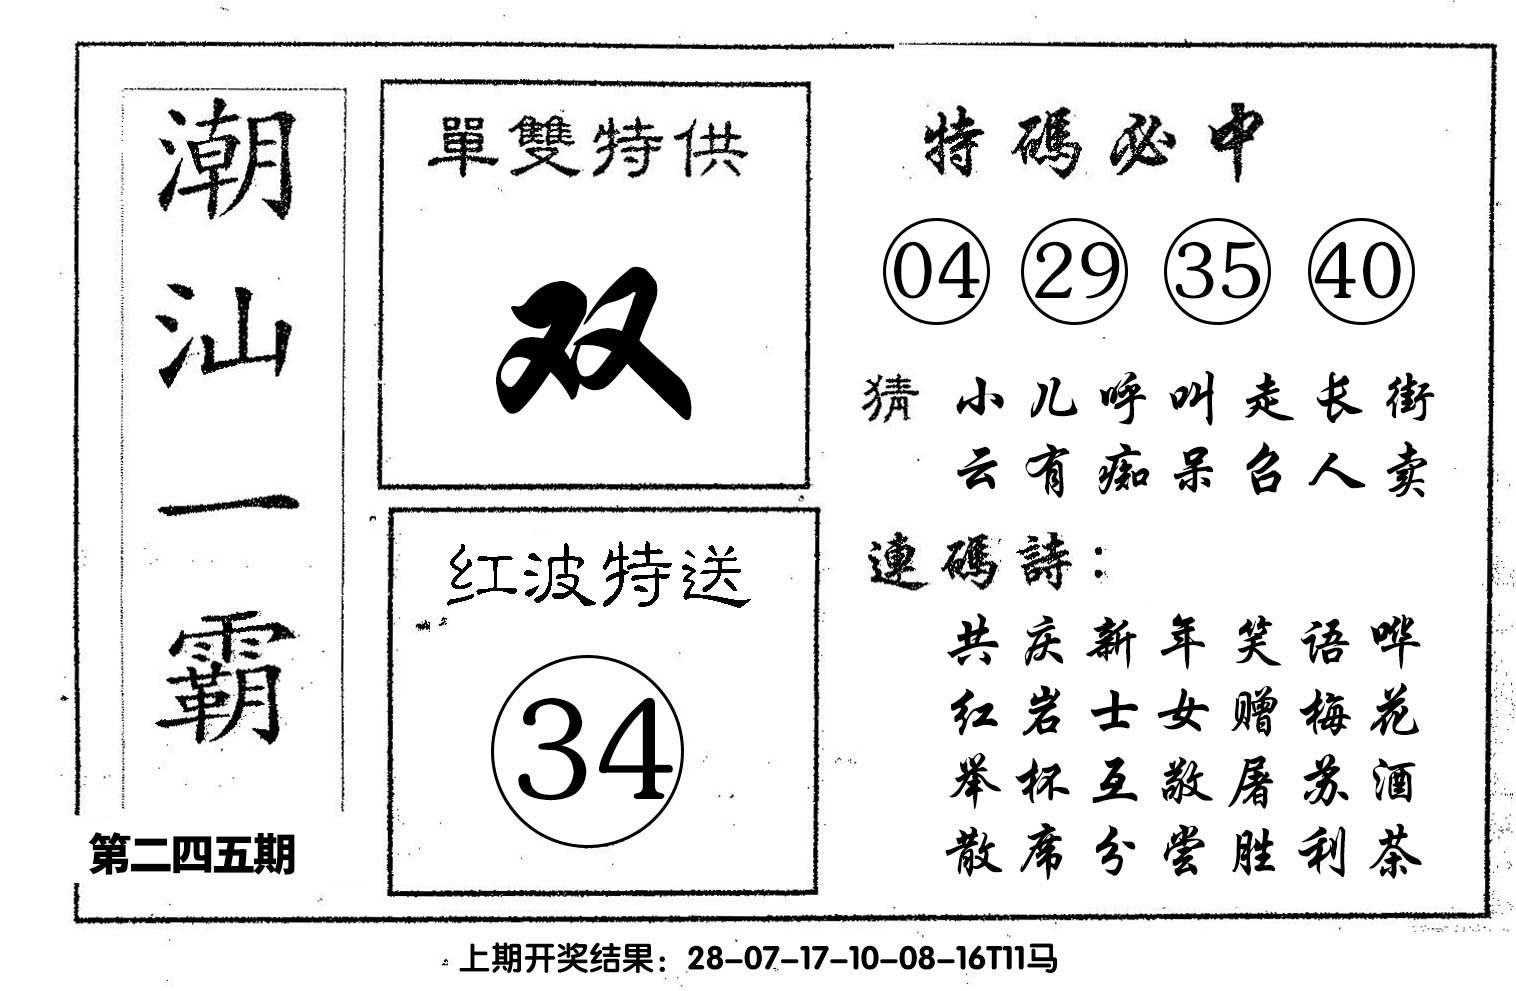 潮汕一霸
第二四五期
單雙特供
双
红波特送
34
特碼必中
04 29 35 40
猜 小儿呼叫走长街
云有痴呆召人卖
連碼詩：
共庆新年笑语哗
红岩士女赠梅花
举杯互敬屠苏酒
散席分尝胜利茶
上期开奖结果：28-07-17-10-08-16T11马